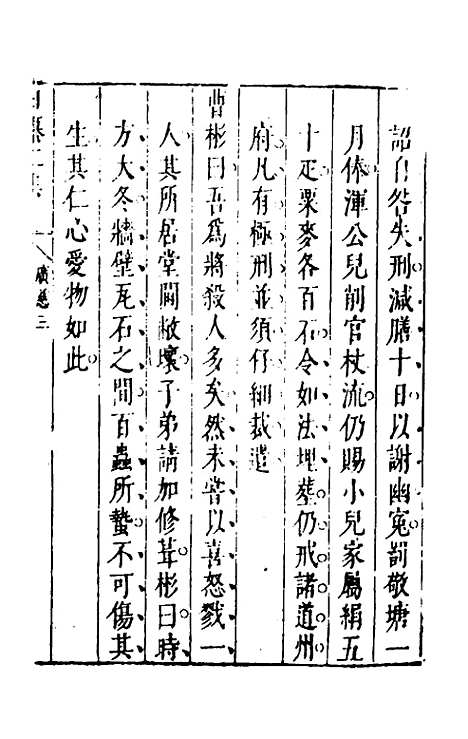 詔自咎失刑減膳十日以謝幽冤罰敬塘一
月俸渾公兒削官杖流仍賜小兒家屬絹五
十疋粟麥各百石令如法埋葬仍戒諸道州
府凡有極刑並須仔細裁遣
曹彬曰吾爲將殺人多矣然未嘗以喜怒戮一
人其所居堂閫敝壞子弟請加修葺彬曰時
方大冬牆壁瓦石之間百蟲所蟄不可傷其
生其仁心愛物如此
廣慈三